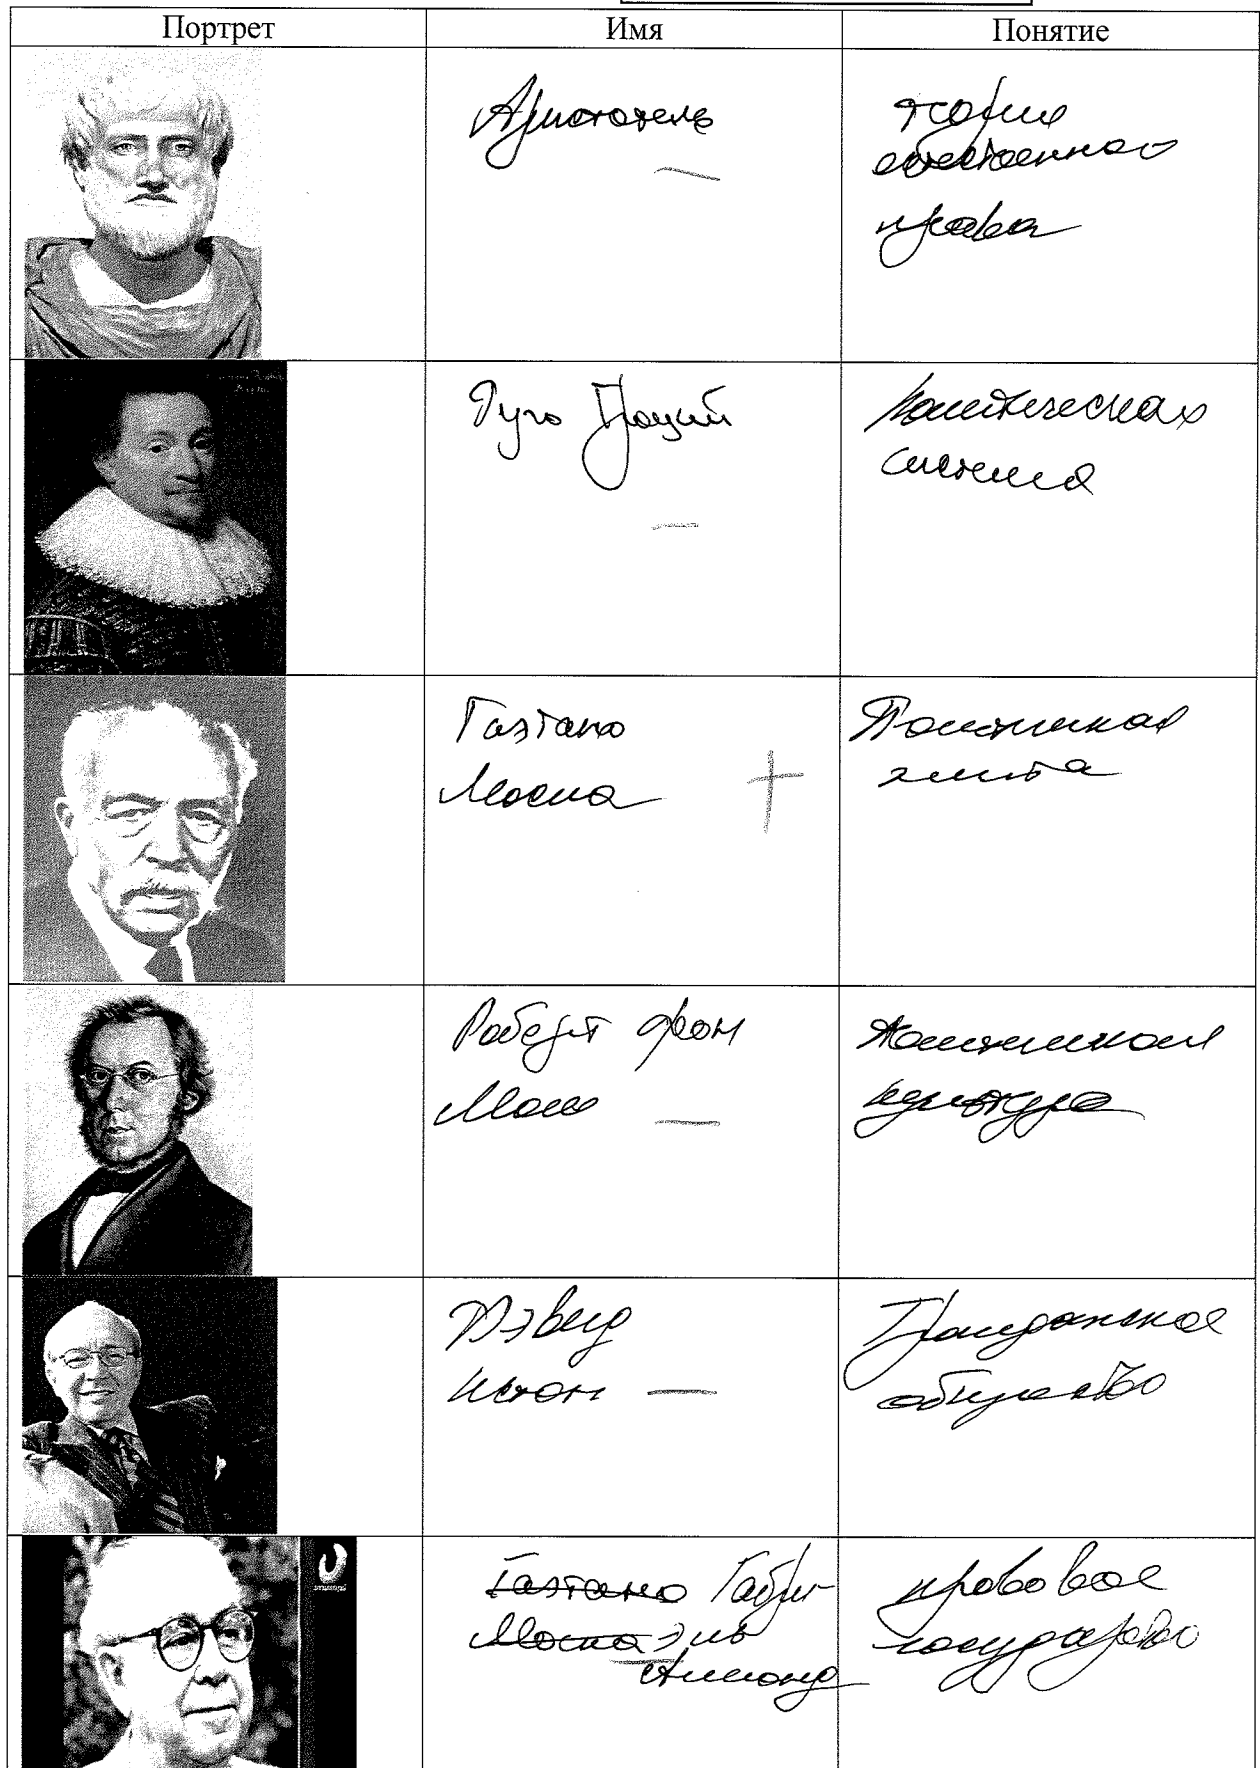 Портрет
Имя
Понятие
Аристотель
теория
естественного
права
Гуго Гроций
Политическая
система
Гаэтано
Моска
Политическая
элита
Роберт фон
Моль
Политическая
культура
Дэвид
Истон
Гражданское
общество
Гаэтано Габри-
Моска эль
Алмонд
правовое
государство